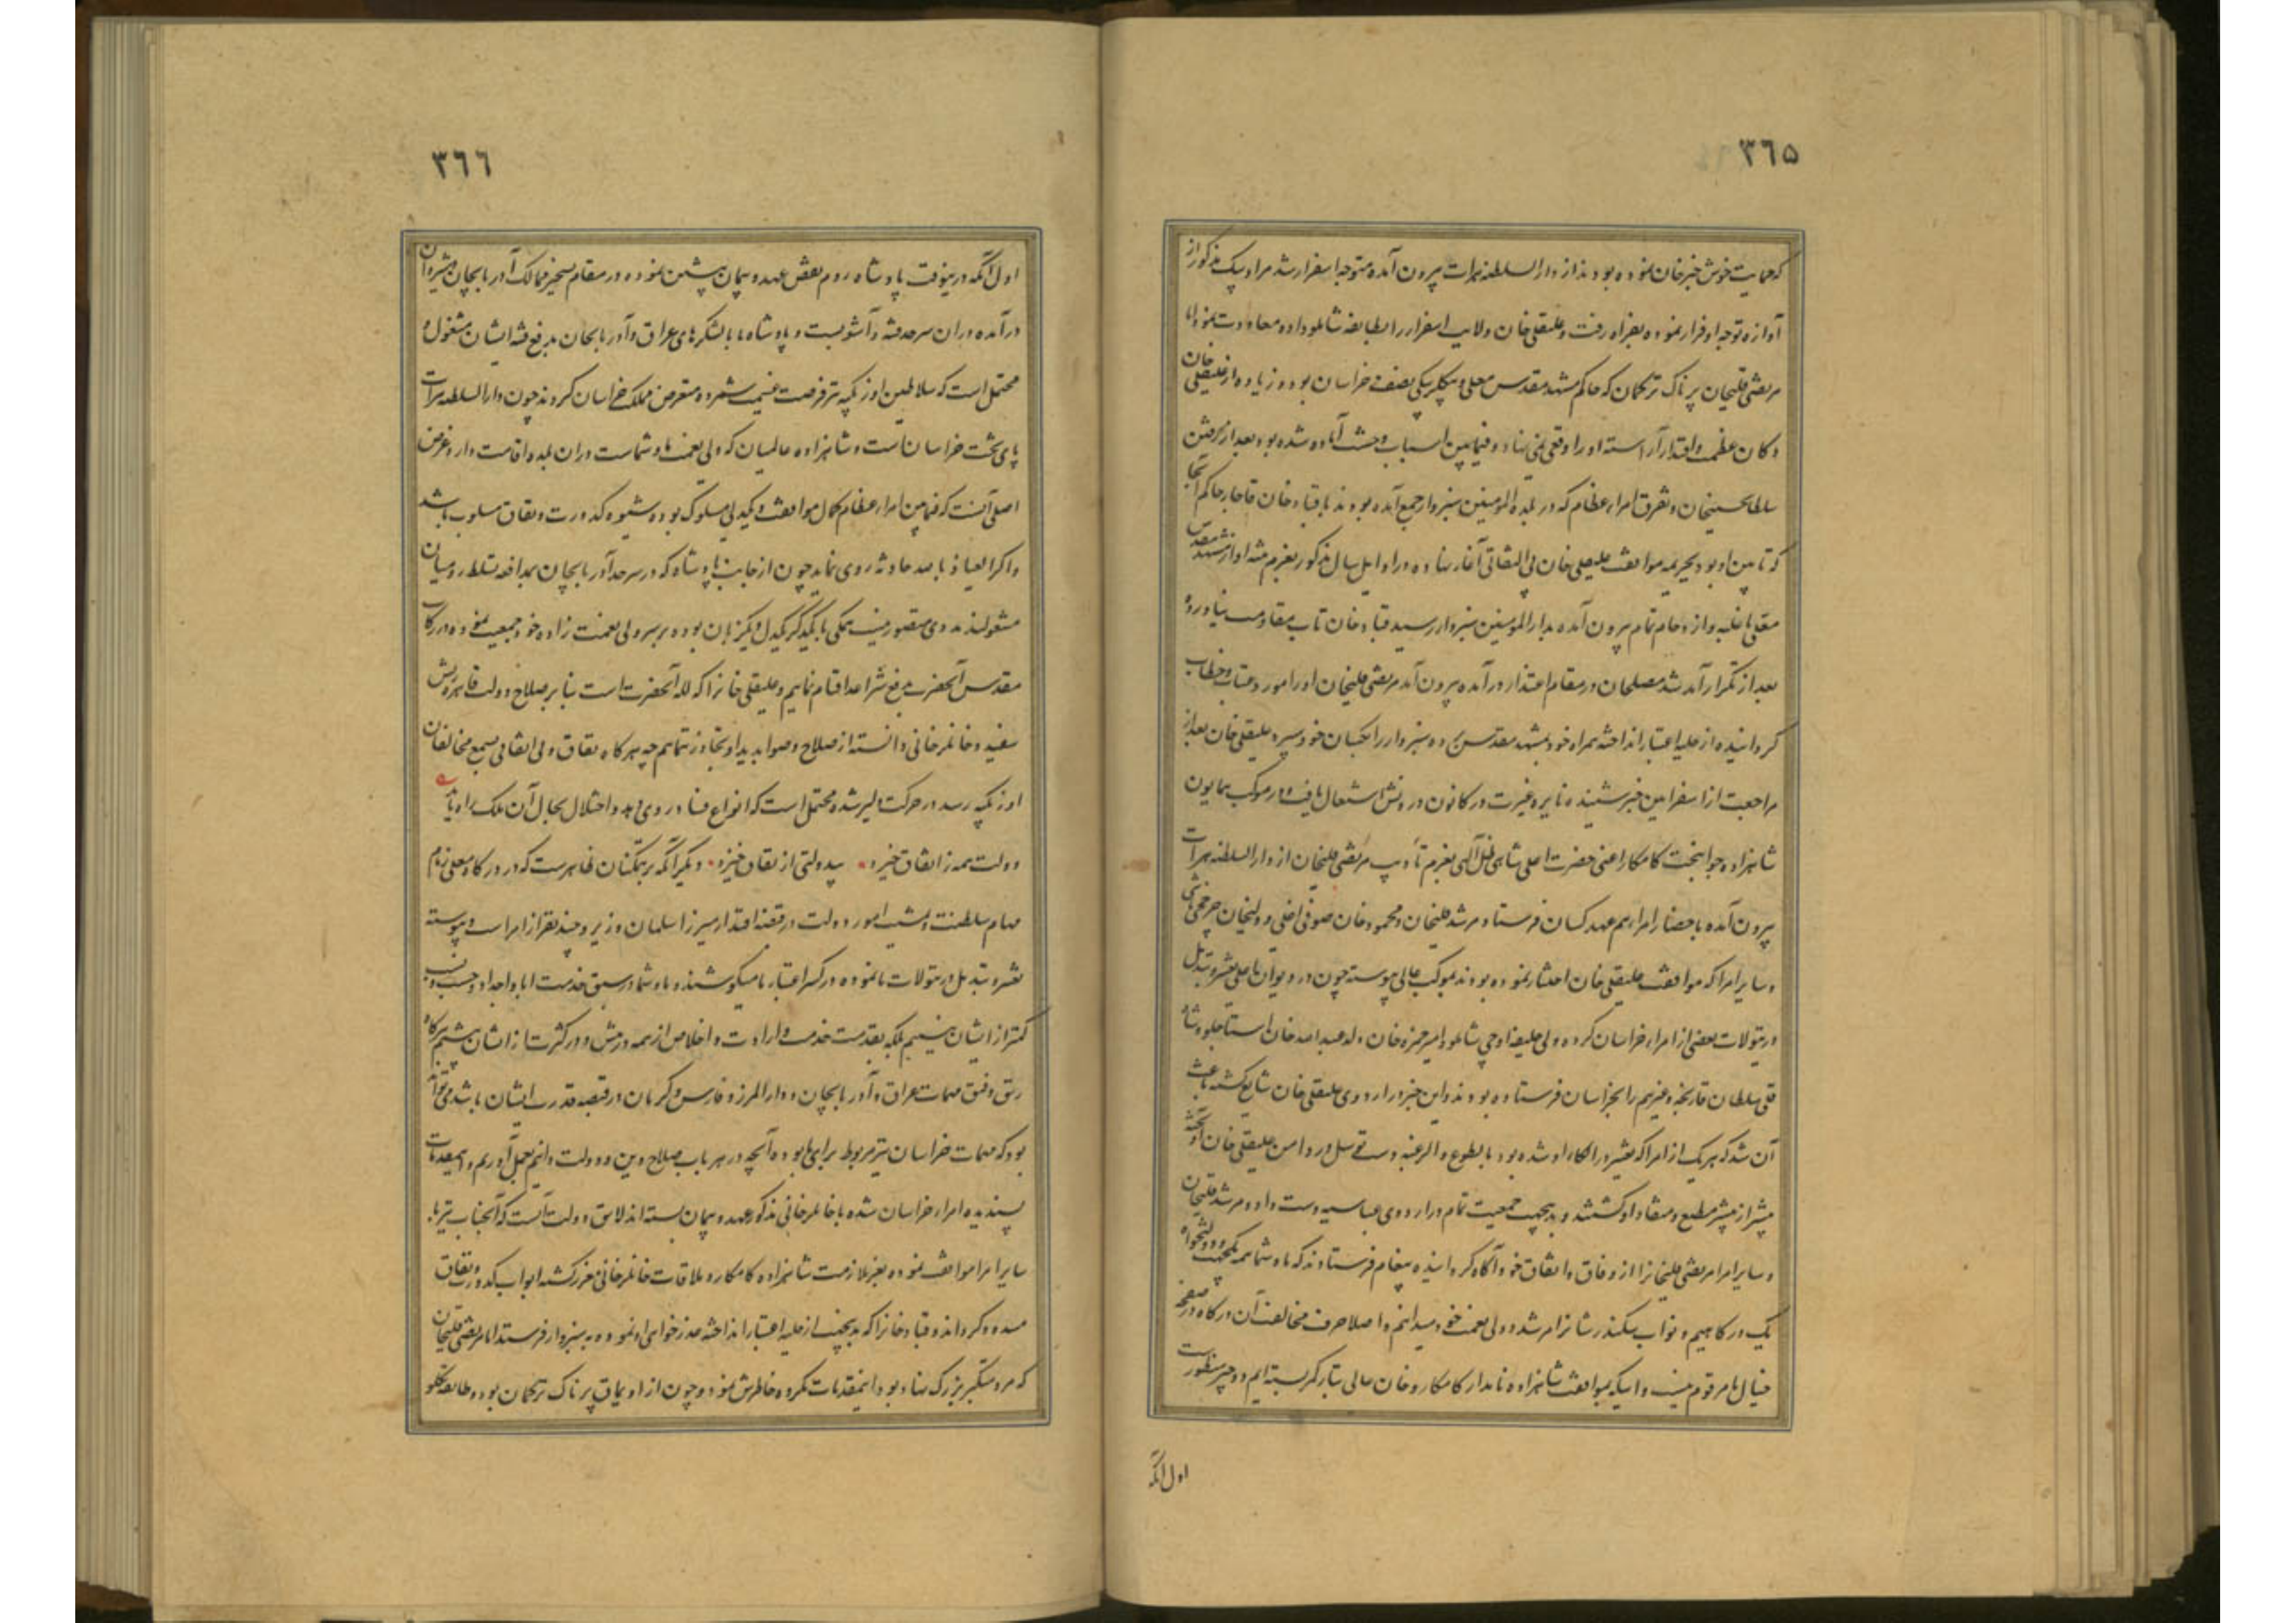 ٣٦٥
که حمایت خوش خبرخان نموده بودند از دار السلطنه هرات بیرون آمده متوجه اسفزار شد مراد بیک مذکور از
آوازه توجه او فرار نموده بغزاه رفت و علیقلی خان ولایت اسفزار را بطایفه شاملو داده معاودت نمود اما
مرتضی قلیخان پرناک ترکمان که حاکم مشهد مقدس معلی و بیکلربیکی نصف خراسان بود و زیاده از علیقلی خان
دکان عظمت و اقتدار آراسته او را وقعی نمی نهاد و فیمابین اسباب وحشت آماده شده بود بعد از رفتن
سلطانحسینخان و تفرق امراء عظام که در بلده المومنین سبزوار جمع آمده بودند با قباد خان قاجار حاکم آنجا
که تابین او بود بجریمه موافقت علیقلی خان بی التفاتی آغاز نهاده در اوایل سال مذکور بعزم او از مشهد مقدس
معلی با غلبه و ازدحام تمام بیرون آمده بدار المومنین سبزوار رسید قباد خان تاب مقاومت نیاورده
بعد از تکرار آمد شد مصلحان در مقام اعتذار درآمده بیرون آمد مرتضی قلیخان او را مورد عتاب و خطاب
گردانیده از حلیه اعتبار انداخته همراه خود بمشهد مقدس برده سبزوار را بکسان خود سپرد علیقلی خان بعد از
مراجعت از اسفزار این خبر شنیده نایره غیرت در کانون درونش اشتعال یافت و در موکب همایون
شاهزاده جوانبخت کامکار اعنی حضرت اعلی شاهی ظل آلهی بعزم تأدیب مرتضی قلیخان از دار السلطنه هرات
بیرون آمده باحضار امراء هم عهد کسان فرستاد مرشد قلیخان و محمود خان صوفی اغلی و ولیخان چرخچی باشی
و سایر امرا که موافقت علیقلی خان اختیار نموده بودند بموکب عالی پیوسته چون در دیوان اعلی تغییر و تبدیل
در تیولات بعضی از امراء خراسان کرده ولی خلیفه اوجی شاملو و امیر حمزه خان ولد عبدالله خان استاجلو و شاه
قلی سلطان قارنجه و غیرهم را بخراسان فرستاده بودند و این خبر در اردوی علیقلی خان شایع گشته باعث
آن شد که هر یک از امرا که تغییر در الکاء او شده بود بالطوع و الرغبه دست توسل در دامن علیقلی خان آویخته
بیشتر از پیشتر مطیع و منقاد او گشتند و بدینجهت جمعیت تمام در اردوی عباسیه دست داد و مرشد قلیخان
و سایر امرا مرتضی قلیخانرا از وفاق و اتفاق خود آگاه گردانیده پیغام فرستادند که ما و شما همه یکجهت و دولتخواه
یک درکاهیم و نواب سکندر شانرا مرشد و ولی نعمت خود میدانیم و اصلا حرف مخالفت آن درکاه در صفحه
خیال ما مرقوم نیست و اینکه بموافقت شاهزاده نامدار کامکار و خان عالی تبار کمر بسته ایم دو چیز منظور است
اول آنکه
٣٦٦
اول آنکه درینوقت پادشاه روم نقض عهد و پیمان پیشین نموده در مقام تسخیر ممالک آذربایجان و شیروان
درآمده در آن سرحد فتنه و آشوبست و پادشاه ما با لشکرهای عراق و آذربایجان بدفع فتنه ایشان مشغول و
محتمل است که سلاطین اوزبکیه نیز فرصت غنیمت شمرده متعرض مملکت خراسان گردند چون دار السلطنه هرات
پای تخت خراسان است و شاهزاده عالمیان که ولی نعمت ما و شماست در آن بلده اقامت دارد غرض
اصلی آنست که فیمابین امراء عظام کمال موافقت و یکدلی مسلوک بوده شیوه کدورت و نفاق مسلوب باشد
و اکر العیاذ بالله حادثه روی نماید چون از جانب پادشاه که در سرحد آذربایجان بمدافعه تسلط رومیان
مشغولند مددی متصور نیست همکی با یکدیگر یکدل و یکزبان بوده بر سر ولی نعمت زاده خود جمعیت نموده در رکاب
مقدس آنحضرت بدفع شر اعدا قیام نماییم و علیقلی خانرا که لله آنحضرت است بنابر صلاح دولت قاهره ریش
سفید و خانلرخانی دانسته از صلاح و صوابدید او تجاوز ننماییم چه هر کاه نفاق و بی اتفاقی بسمع مخالفان
اوزبکیه رسد در حرکت دلیر شده محتمل است که انواع فساد روی دهد و اختلال بحال آن ملک راه یابد
دولت همه ز اتفاق خیزد بیدولتی از نفاق خیزد دیگر آنکه بر همکنان ظاهر است که در درکاه معلی زمام
مهام سلطنت و مشیت امور دولت در قبضه اقتدار میرزا سلمان وزیر و چند نفر از امراست و پیوسته
تغییر و تبدیل در تیولات ما نموده در کسر اعتبار ما میکوشند و ما و شما در سبق خدمت آبا و اجداد و حسب و نسب
کمتر از ایشان نیستیم بلکه بقدمت خدمت و ارادت و اخلاص از همه در پیش و در کثرت از ایشان بیشیم هرکاه
رتق و فتق مهمات عراق و آذربایجان و دار المرز و فارس و کرمان در قبضه قدرت ایشان باشد می تواند
بود که مهمات خراسان نیز مربوط برای ما بوده آنچه در هر باب صلاح دین و دولت دانیم بعمل آوریم و اینمقدمات
پسندیده امراء خراسان شده با خانلرخانی مذکور عهد و پیمان بسته اند لایق دولت آنست که آنجناب نیز با
سایر امرا موافقت نموده بعز ملازمت شاهزاده کامکار و ملاقات خانلرخانی معزز گشته ابواب کدورت و نفاق
مسدود گرداند و قباد خانرا که بدینجهت از حلیه اعتبار انداخته عذرخواهی او نموده به سبزوار فرستد اما مرتضی قلیخان
که مرد متکبر بزرگ نهاد بود اینمقدمات مکروه خاطرش نمود و چون از اویماق پرناک ترکمان بود و طایفه تکلو